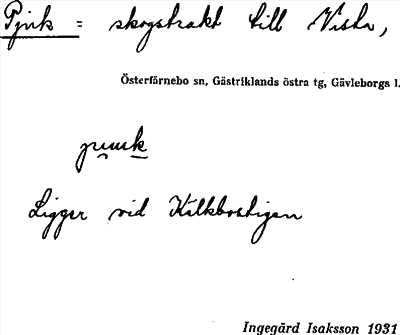 Pjuk = skogstrakt till Vista,
Österfärnebo sn, Gästriklands östra tg, Gävleborgs l.
Ligger vid Kälkbostigen
Ingegärd Isaksson 1931